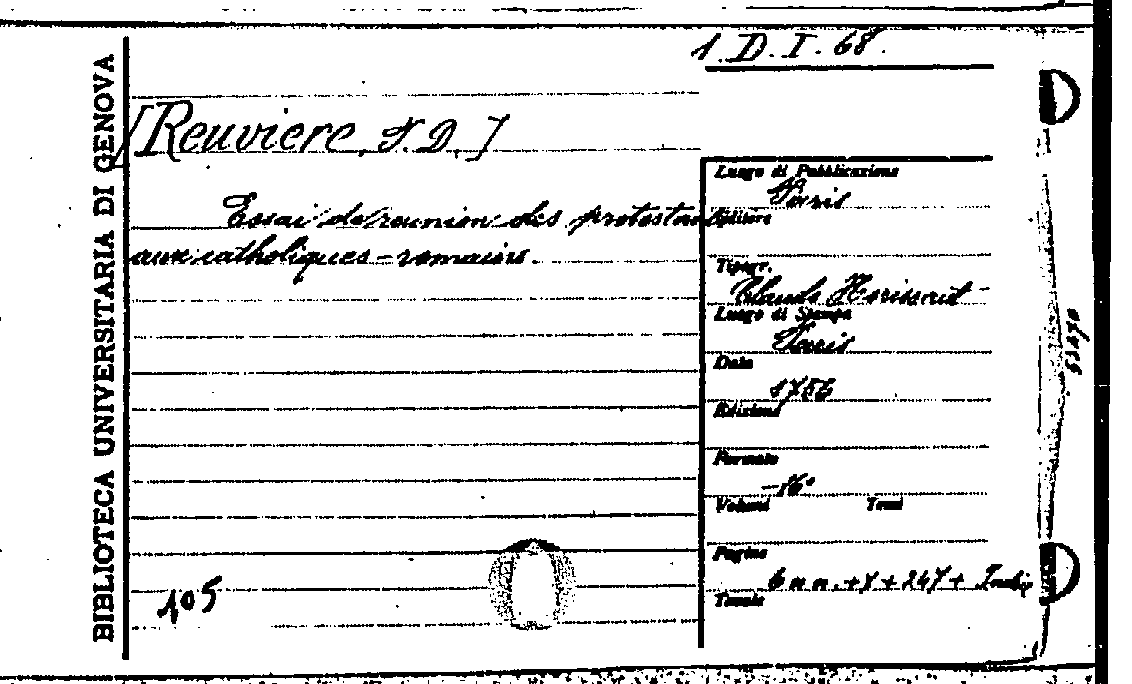 BIBLIOTECA UNIVERSITARIA DI GENOVA
1. D. I. 68.
[Reuviere, J. D.]
Essai de reunion des protestants
aux catholiques-romains.
Luogo di Pubblicazione
Paris
Editore
Tipogr.
Claude Herissant
Luogo di Stampa
Paris
Data
1756
Edizioni
Formato
-16°
Volumi Tomi
Pagine
6 n.n. + X + 247 +
Tavole
105